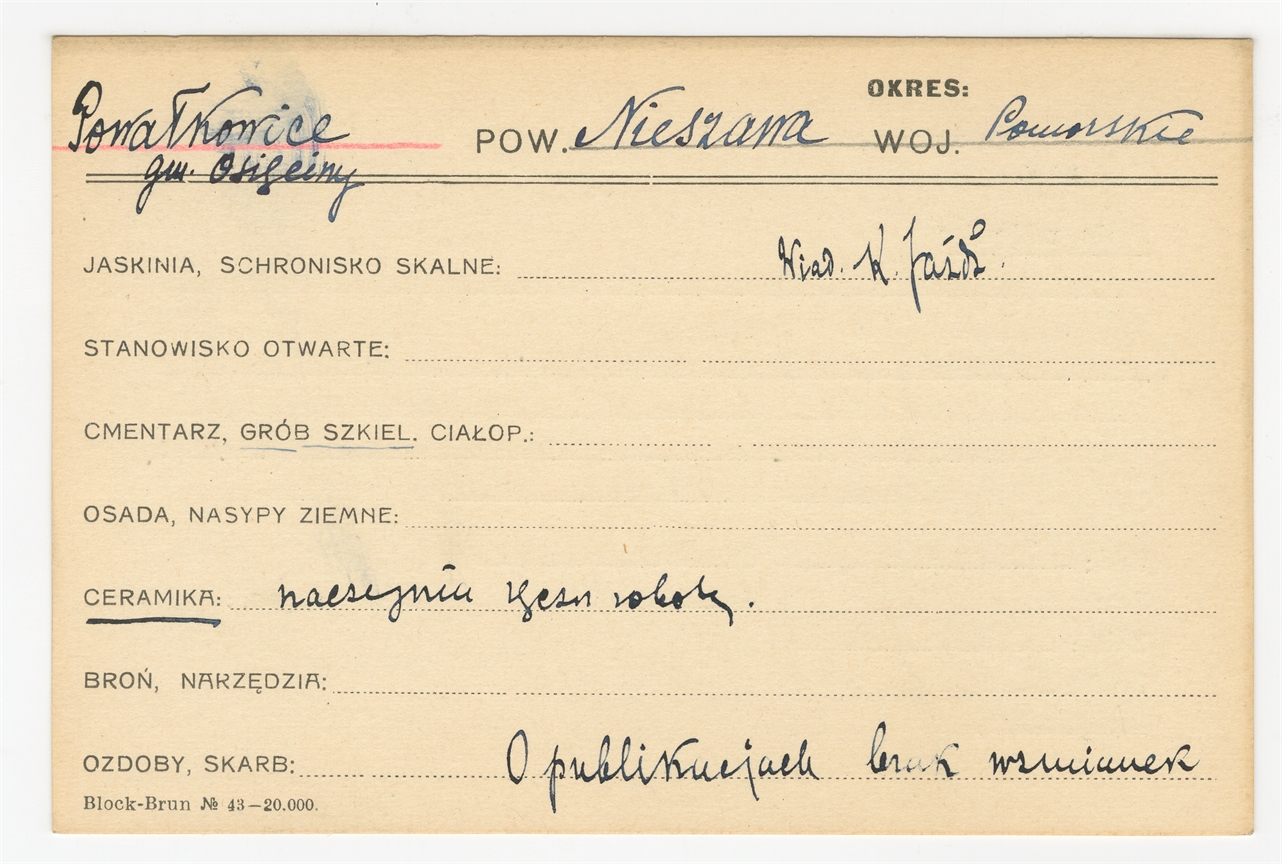 OKRES:
Powałkowice POW. Nieszawa WOJ. Pomorskie
gm. Osięciny
JASKINIA, SCHRONISKO SKALNE: Wiad. K. Jażdż.
STANOWISKO OTWARTE:
CMENTARZ, GRÓB SZKIEL. CIAŁOP.:
OSADA, NASYPY ZIEMNE:
CERAMIKA: naczynia ręczn roboty.
BROŃ, NARZĘDZIA:
OZDOBY, SKARB: O publikacjach brak wzmianek
Block-Brun № 43—20.000.